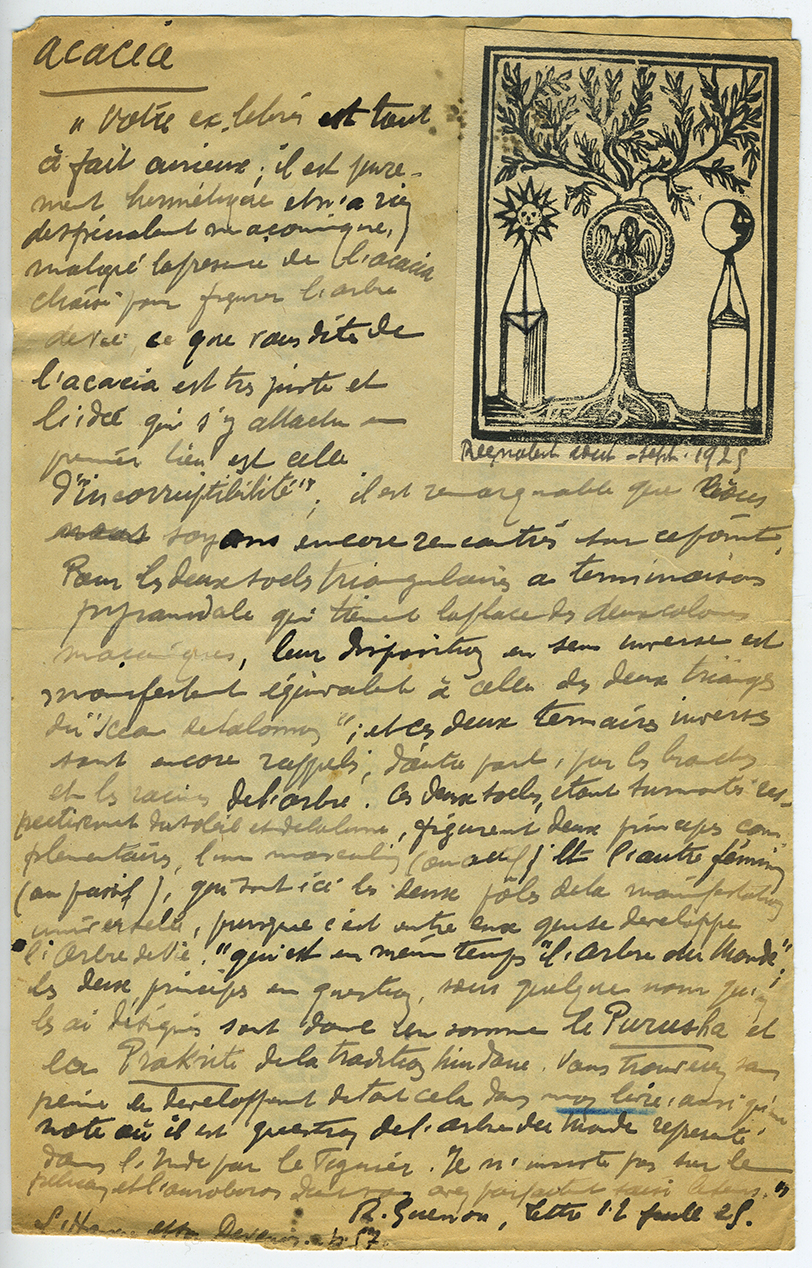 acacia
"Votre ex-libris est tout
à fait curieux ; il est pure-
ment hermétique et n'a rien
de spécialement maçonnique,
malgré la présence de l'acacia
choisi pour figurer l'arbre
de vie, ce que vous dites de
l'acacia est très juste et
l'idée qui s'y attache en
premier lieu est celle
d'"incorruptibilité" ; il est remarquable que nous
nous soyons encore rencontrés sur ce point.
Pour les deux socles triangulaires à terminaison
pyramidale qui tiennent la place des deux colonnes
maçonniques, leur disposition en sens inverse est
manifestement équivalent à celle des deux triangles
du "sceau de Salomon" ; et ces deux ternaires inverses
sont encore rappelés, d'autre part, par les branches
et les racines de l'arbre. Ces deux socles, étant surmontés res-
pectivement du soleil et de la lune, figurent deux principes com
plémentaires, l'un masculin (ou actif) et l'autre féminin
(ou passif), qui sont ici les deux pôles de la manifestation
universelle, puisque c'est entre eux que se développe
l'Arbre de Vie, "qui est en même temps "l'Arbre du Monde" ;
les deux principes en question, sous quelque nom qu'on
les ai désignés sont donc en somme le Purusha et
la Prakriti de la tradition hindoue. Vous trouverez sans
peine en développement de tout cela dans mon livre, ainsi qu'une
note où il est question de l'arbre du Monde représenté
dans l'Inde par le figuier. Je n'insiste pas sur le
pélican et l'ouroboros
R. Guénon, lettre 12 juill 25.
L'Homme et son Devenir. p. 57
Regnabit août-sept. 1925